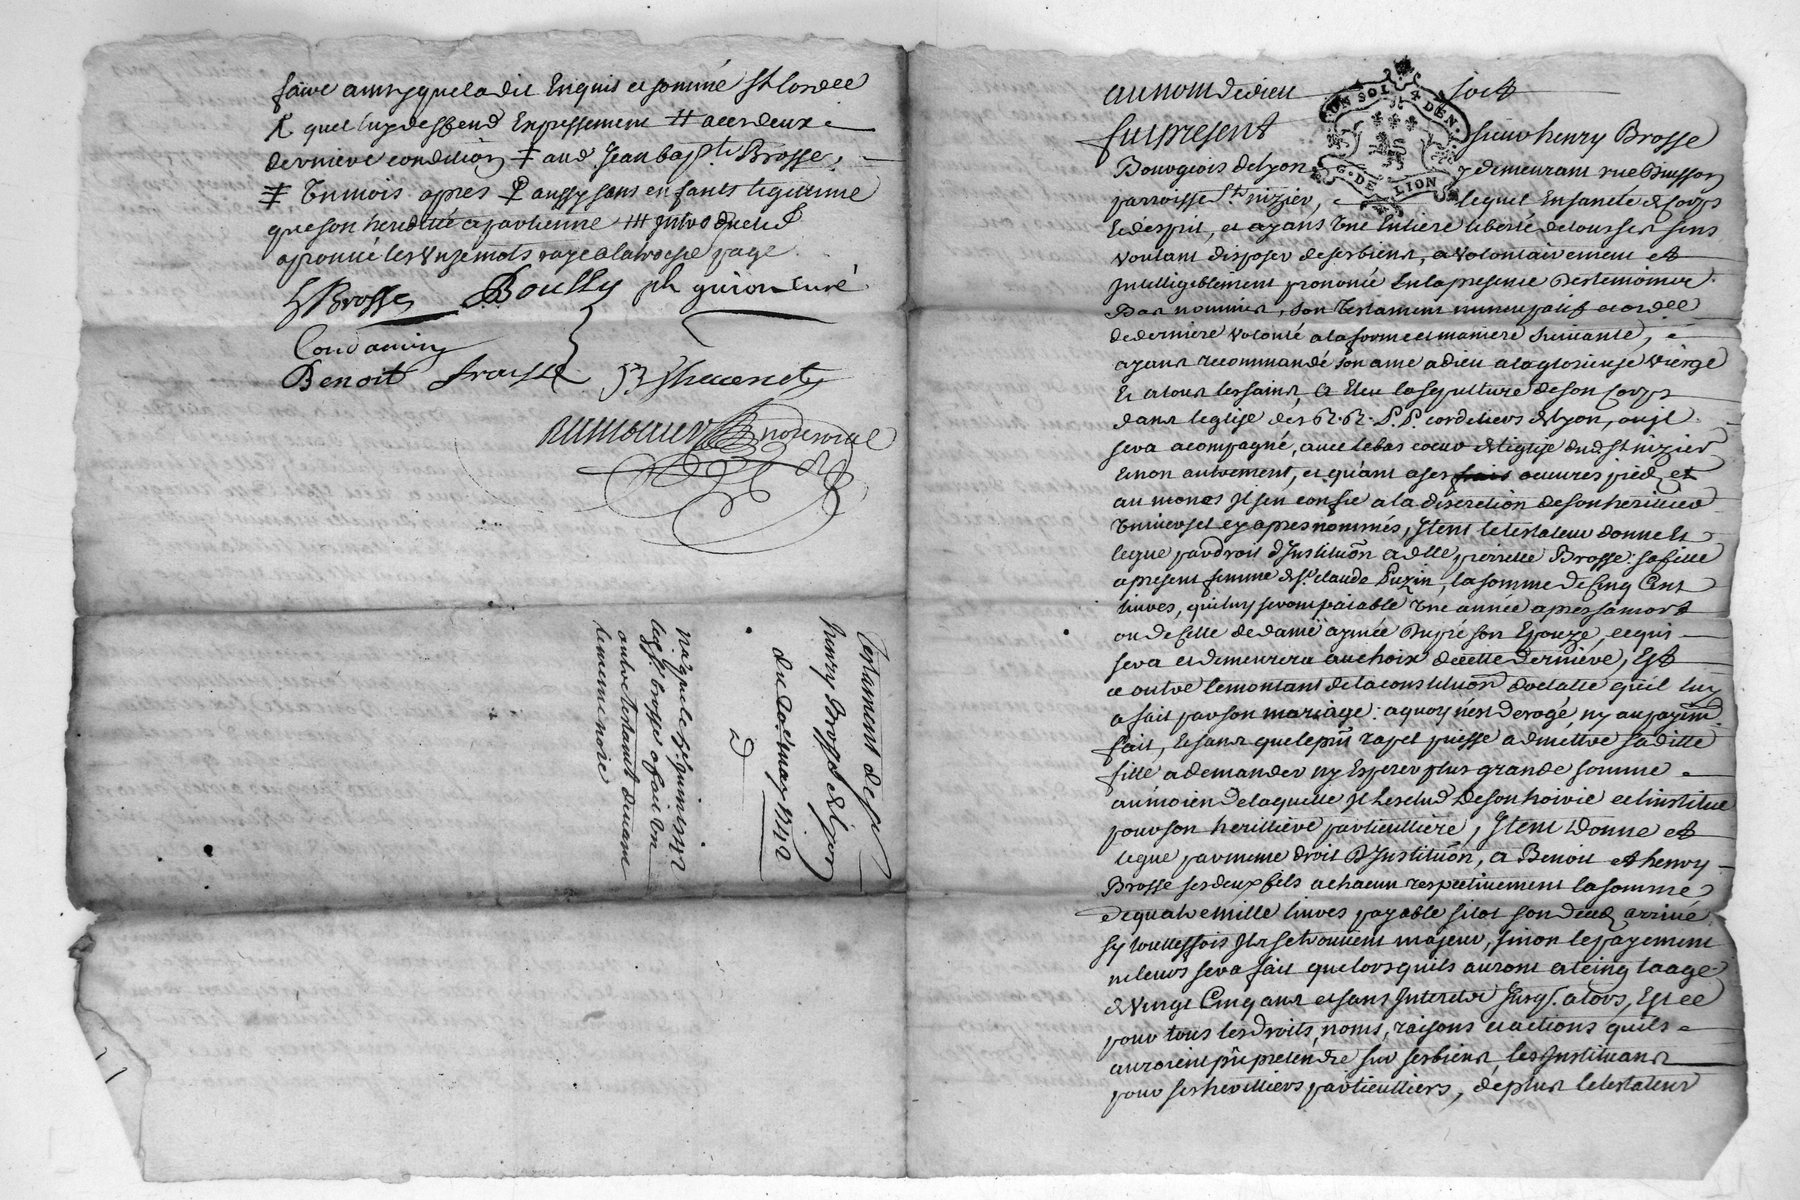 faire aussy que la dit Enquis et sommé
quel luy deffend Expressement # a ces deux
derniere condition ‡ aud. Jean bap.te Brosse,
‡ un mois apres aussy sans enfants legitime
que son heredité apartienne
aprouvé les unze mots raye a la page
h Brosse Boully ph guion curé
Condamin
Benoit
not. royal
Testament de Sr
henry Brosse de Lyon
du 20e may 1712
Na. que le Sr
Brosse a fait un
autre testament devant
le meme no.re
au nom de dieu soit
UN SOL 4 DEN.
G. DE LION
fut present sieur henry Brosse
Bourgeois de Lyon y demeurant rue Buisson
parroisse St. nizier, lequel En santé de corps
Et desprit, et ayant Une Entiere liberté de tous ses sens
voulant disposer de ses biens, a volontairement et
Intelligiblement prononcé En la presence des temoins
bas nommés, son Testament nuncupatif et ord.
de derniere volonté a la forme et maniere suivante,
ayant recommandé son ame a dieu a la glorieuse vierge
Et a tous les saints, a Eleu la sepulture de son Corps
dans leglise des R. R. P. P. cordeliers de Lyon, ou il
sera acompagné, avec le bas coeur de leglise dud. St nizier
Et non autrement, et quant a ses frais oeuvres pies et
aumones Il sen confie a la discretion de son heritier
Universel cy apres nommés, Item le testateur donne Et
legue par droit d'Institu͠on a dlle pierrette Brosse sa fille
a present femme de Sr. claude Puzin, la somme de Cinq Cent
livres, qui luy seront paiable Une année apres sa mort
ou de celle de dame aymée Dupré son Epouze, ce qui
sera et demeurera au choix de cette derniere, Et
ce outre le montant de la constitu͠on dotalle quil luy
a fait par son mariage: a quoy n'est derogé ny au payem.
fait, Et sans que le p͠nt rapel puisse admettre sa ditte
fille a demander ny Esperer plus grande somme
au moien de laquelle Il l'exclud de son hoirie et linstitue
pour son heritiere particulliere, Item donne et
legue par meme droit d'Institu͠on, a Benoit et henry
Brosse ses deux fils a chacun respectivement la somme
de quatre mille livres payable sitot son deced arrivé
sy touttesfois Ils se trouvent majeur, sinon le payement
ne leurs sera fait que lors quils auront ateing laage
de Vingt Cinq ans et sans Interets Jusq. alors, Et ce
pour tous les droits, noms, raisons et actions quils
auroient pû pretendre sur ses biens les Instituant
pour ses heritiers particulliers, de plus le testateur